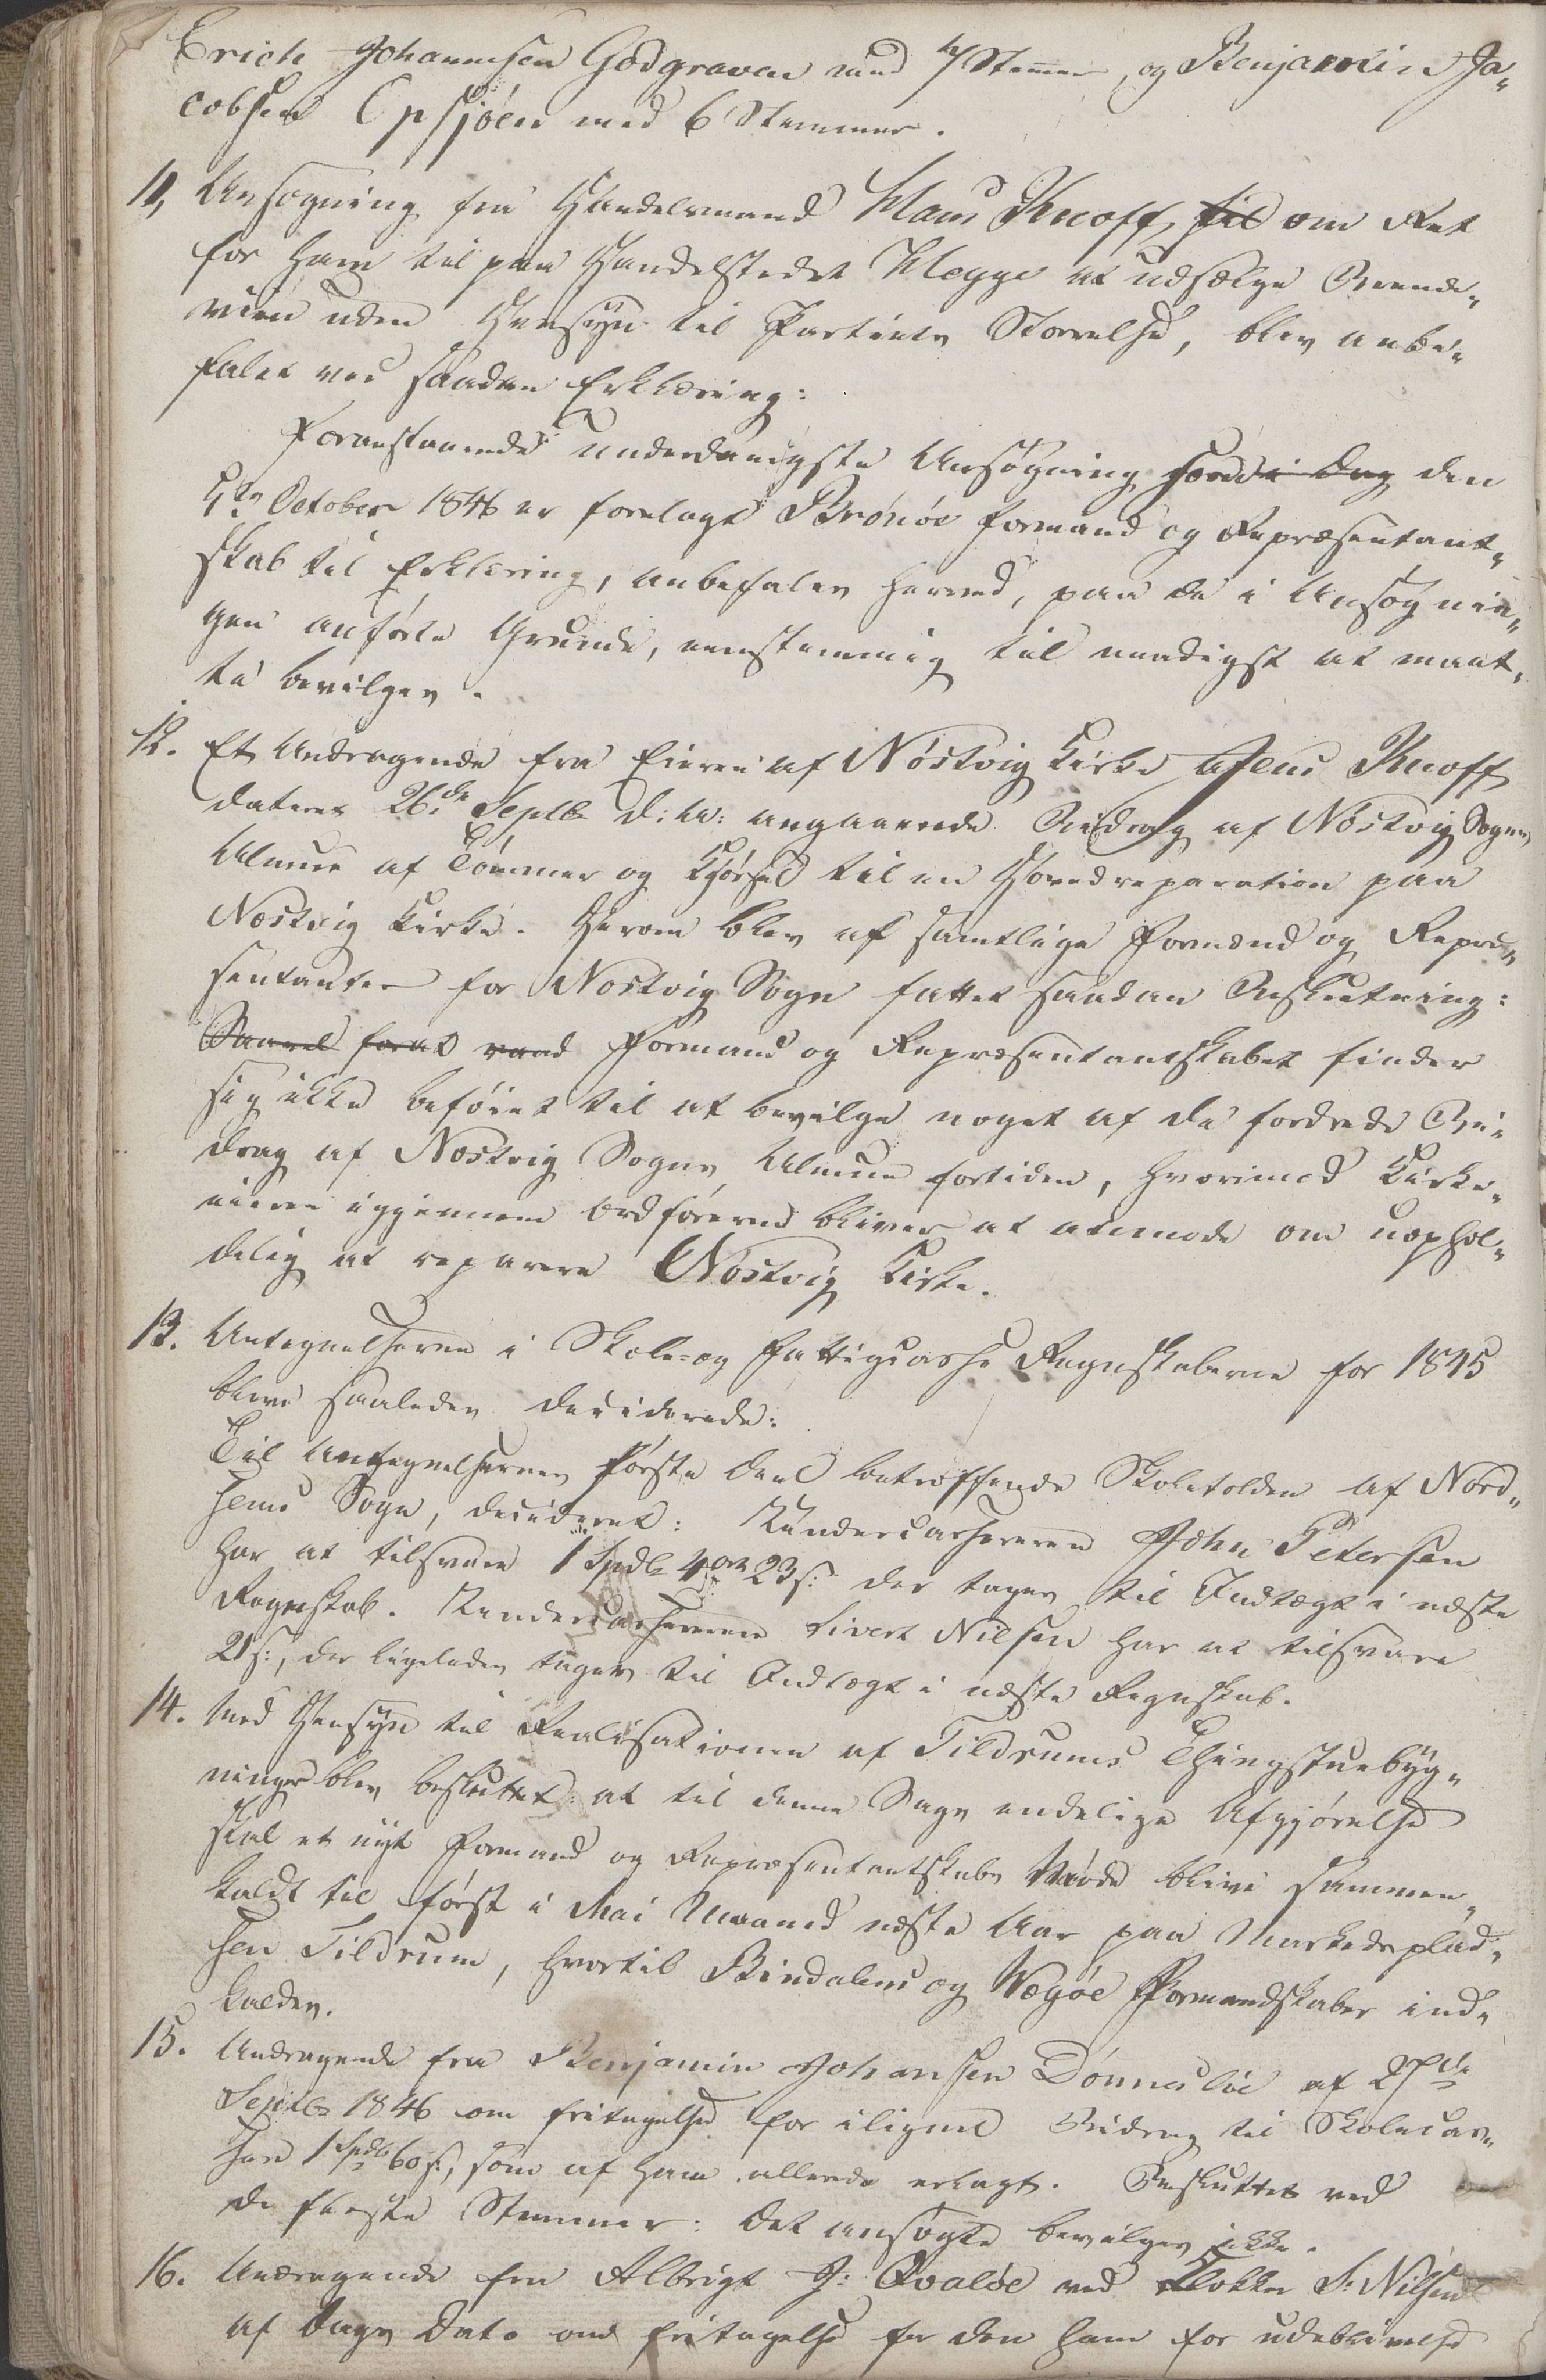 Erich Johannesen Godgraven med 7 Stemmer, og Benjamin Ja„
cobsen Opsjøen med 6 Stemmer.
11, Ansøgning fra Handelsmand Hans Knoff, til om Ret
for ham til paa Handelstedet Hegge at udsælge Brænde„
viin uden Hensyn til Partiets Størrelse, blev anbe„
falet ved saadan Erklæring:
Foranstaaende underdanigste Ansøgning i Dag den
October 1846 er forelagt Brønøe Formand og Repræsentant„
skab til Erklæring, anbefales herved, paa de i Ansøgnin„
gen anførte Grunde, eenstemmig til naadigst at maat„
te bevilges.
12. Et Andragende fra Eieren af Nøstvig Kirke Jens Knoff
dateret 26de Septbr d: A: angaaende Bidrag af Nøstvig Sogns
Almue af Tømmer og Kjørsel til en Hovedreparation paa
Nøstvig Kirke. Herom blev af samtlige Formænd og Repræ„
sentanter for Nøstvig Sogn fattet saadan Beslutning:
Formand og Repræsentantskabet finder
sig ikke beføiet til at bevilge noget af de fordrede Bi„
drag af Nøstvig Sogns Almue fortiden, hvorimod Kirke„
eieren igjennem Ordføreren bliver at anmode om uophol„
delig at reparere Nøstvig Kirke.
13. Antegnelserne i Skole- og Fattigcasse Regnskaberne for 1845
bleve saaledes deciderede:
Til Antegnelsernes første Deel betræffende Skoletolden af Nord„
hems Sogn, decideret: Undercassereren John Petersen
har at tilsvare 1 Spdlr 4 ort 23 s: der tages til Indtægt i næste
Regnskab. Undercassereren Sivert Nilsen har at tilsvare
21 s:, der ligeledes tages til Indtægt i næste Regnskab.
14. Med Hensyn til Realisationen af Tildrums Thingstuebyg„
ninger blev besluttet: at til denne Sags endelige Afgjørelse
skal et nyt Formand og Repræsentantskabs Møde blive sammen„
kaldt til først i Mai Maaned næste Aar paa Markedsplad„
sen Tildrum, hvortil Bindalens og Vegøe Formandskaber ind„
kaldes.
15. Andragende fra Benjamin Johansen Dønnesløe af 27de
Septbr 1846 om fritagelse for ilignet Bidrag til Skolecas„
sen 1 Spdlr 60 s:, som af ham allerede erlagt. Besluttet ved
de fleste Stemmer: det ansøgte bevilges ikke.
16. Andragende fra Albrigt J: Qvaløe ved Klokker S. Nilsen
af Dags Dato om fritagelse for den ham for udeblivelse